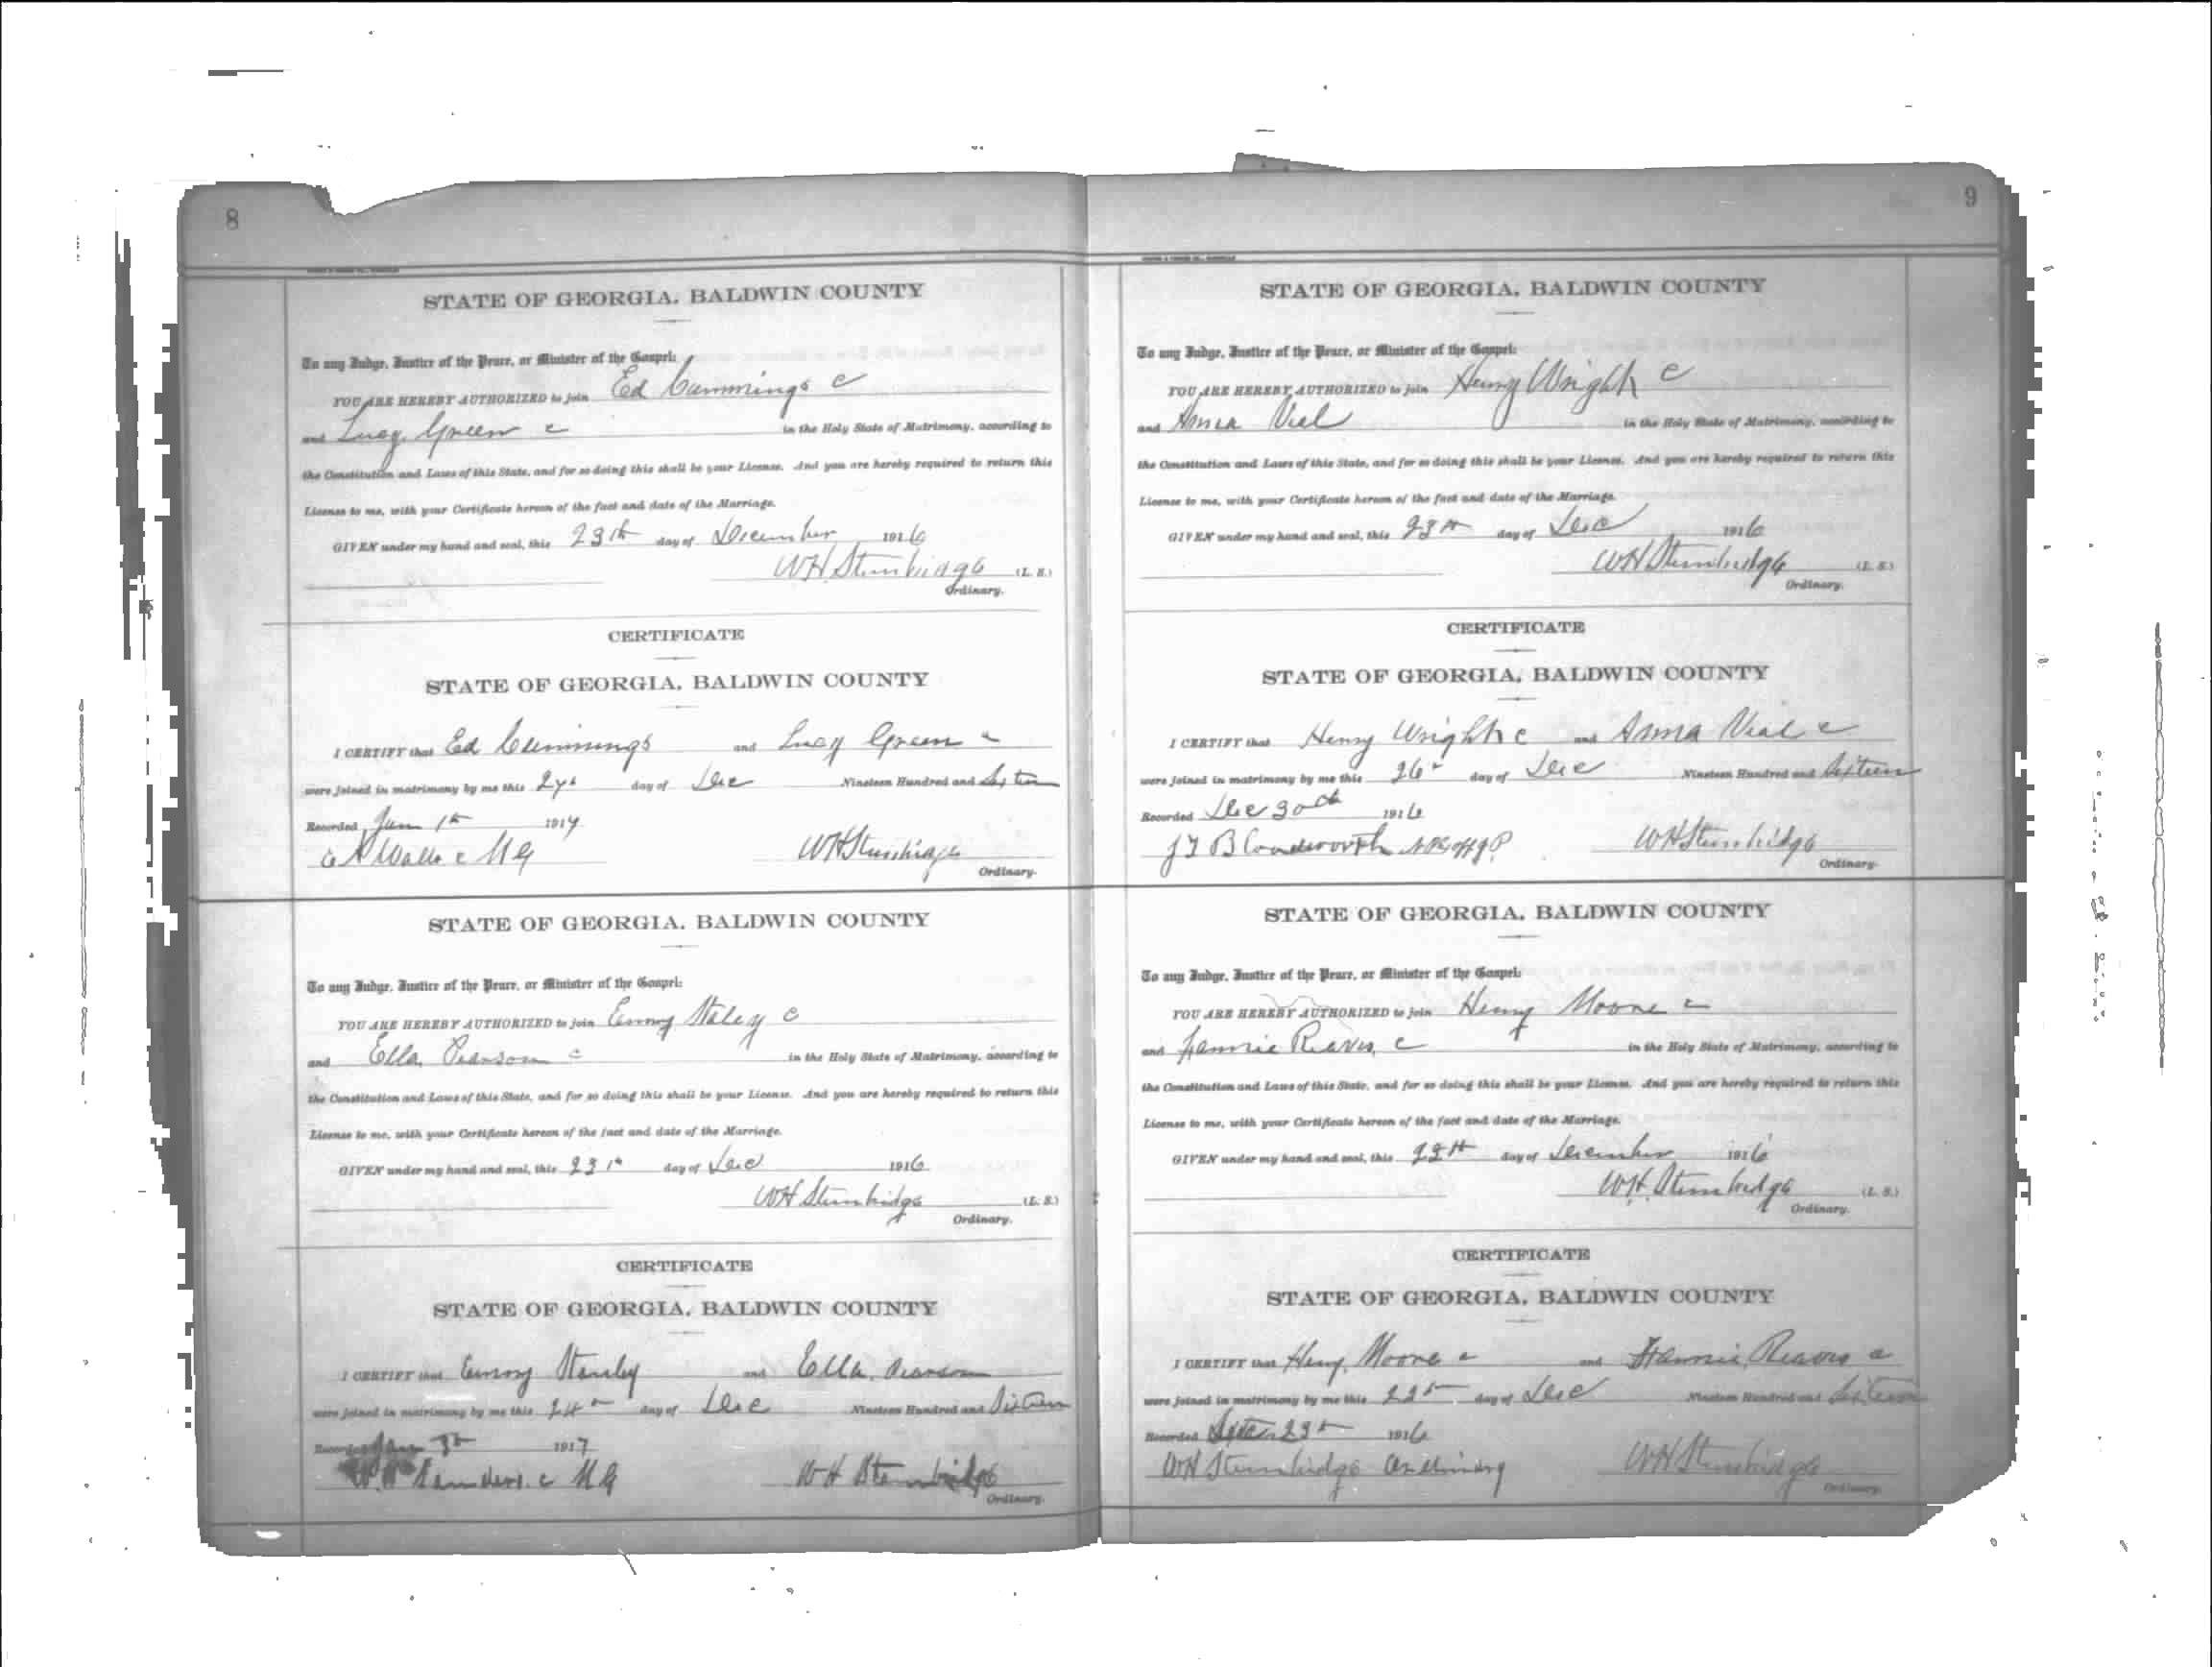 8
STATE OF GEORGIA, BALDWIN COUNTY
To any Judge, Justice of the Peace, or Minister of the Gospel:
YOU ARE HEREBY AUTHORIZED to join Ed Cummings c
and Lucy Green c in the Holy State of Matrimony, according to
the Constitution and Laws of this State, and for so doing this shall be your License. And you are hereby required to return this
License to me, with your Certificate hereon of the fact and date of the Marriage.
GIVEN under my hand and seal, this 23th day of December 1916
WH Stembridge (L. S.)
Ordinary.
CERTIFICATE
STATE OF GEORGIA, BALDWIN COUNTY
I CERTIFY that Ed Cummings and Lucy Green c
were joined in matrimony by me this day of Dec Nineteen Hundred and Sixteen
Recorded 1th 1917
c M G WH Stembridge
Ordinary.
STATE OF GEORGIA, BALDWIN COUNTY
To any Judge, Justice of the Peace, or Minister of the Gospel:
YOU ARE HEREBY AUTHORIZED to join Emory Staley c
and Ella Pearson c in the Holy State of Matrimony, according to
the Constitution and Laws of this State, and for so doing this shall be your License. And you are hereby required to return this
License to me, with your Certificate hereon of the fact and date of the Marriage.
GIVEN under my hand and seal, this 23th day of Dec 1916
WH Stembridge (L. S.)
Ordinary.
CERTIFICATE
STATE OF GEORGIA, BALDWIN COUNTY
I CERTIFY that Emory Stanley and Ella Pearson
were joined in matrimony by me this 24th day of Dec Nineteen Hundred and Sixteen
Recorded Jan 1917
Sanders c M G WH Stembridge
Ordinary.
9
STATE OF GEORGIA, BALDWIN COUNTY
To any Judge, Justice of the Peace, or Minister of the Gospel:
YOU ARE HEREBY AUTHORIZED to join Henry Wright c
and Anna Veal in the Holy State of Matrimony, according to
the Constitution and Laws of this State, and for so doing this shall be your License. And you are hereby required to return this
License to me, with your Certificate hereon of the fact and date of the Marriage.
GIVEN under my hand and seal, this 23th day of Dec 1916
WH Stembridge (L. S.)
Ordinary.
CERTIFICATE
STATE OF GEORGIA, BALDWIN COUNTY
I CERTIFY that Henry Wright c and Anna Veal c
were joined in matrimony by me this 26th day of Dec Nineteen Hundred and Sixteen
Recorded Dec 30th 1916
J T Bloodworth WH Stembridge
Ordinary.
STATE OF GEORGIA, BALDWIN COUNTY
To any Judge, Justice of the Peace, or Minister of the Gospel:
YOU ARE HEREBY AUTHORIZED to join Henry Moore c
and Fannie Reaves c in the Holy State of Matrimony, according to
the Constitution and Laws of this State, and for so doing this shall be your License. And you are hereby required to return this
License to me, with your Certificate hereon of the fact and date of the Marriage.
GIVEN under my hand and seal, this 22th day of December 1916
W.H. Stembridge (L. S.)
Ordinary.
CERTIFICATE
STATE OF GEORGIA, BALDWIN COUNTY
I CERTIFY that Henry Moore c and Fannie Reaves c
were joined in matrimony by me this 22th day of Dec Nineteen Hundred and Sixteen
Recorded 23th 1916
WH Stembridge Ordinary WH Stembridge
Ordinary.